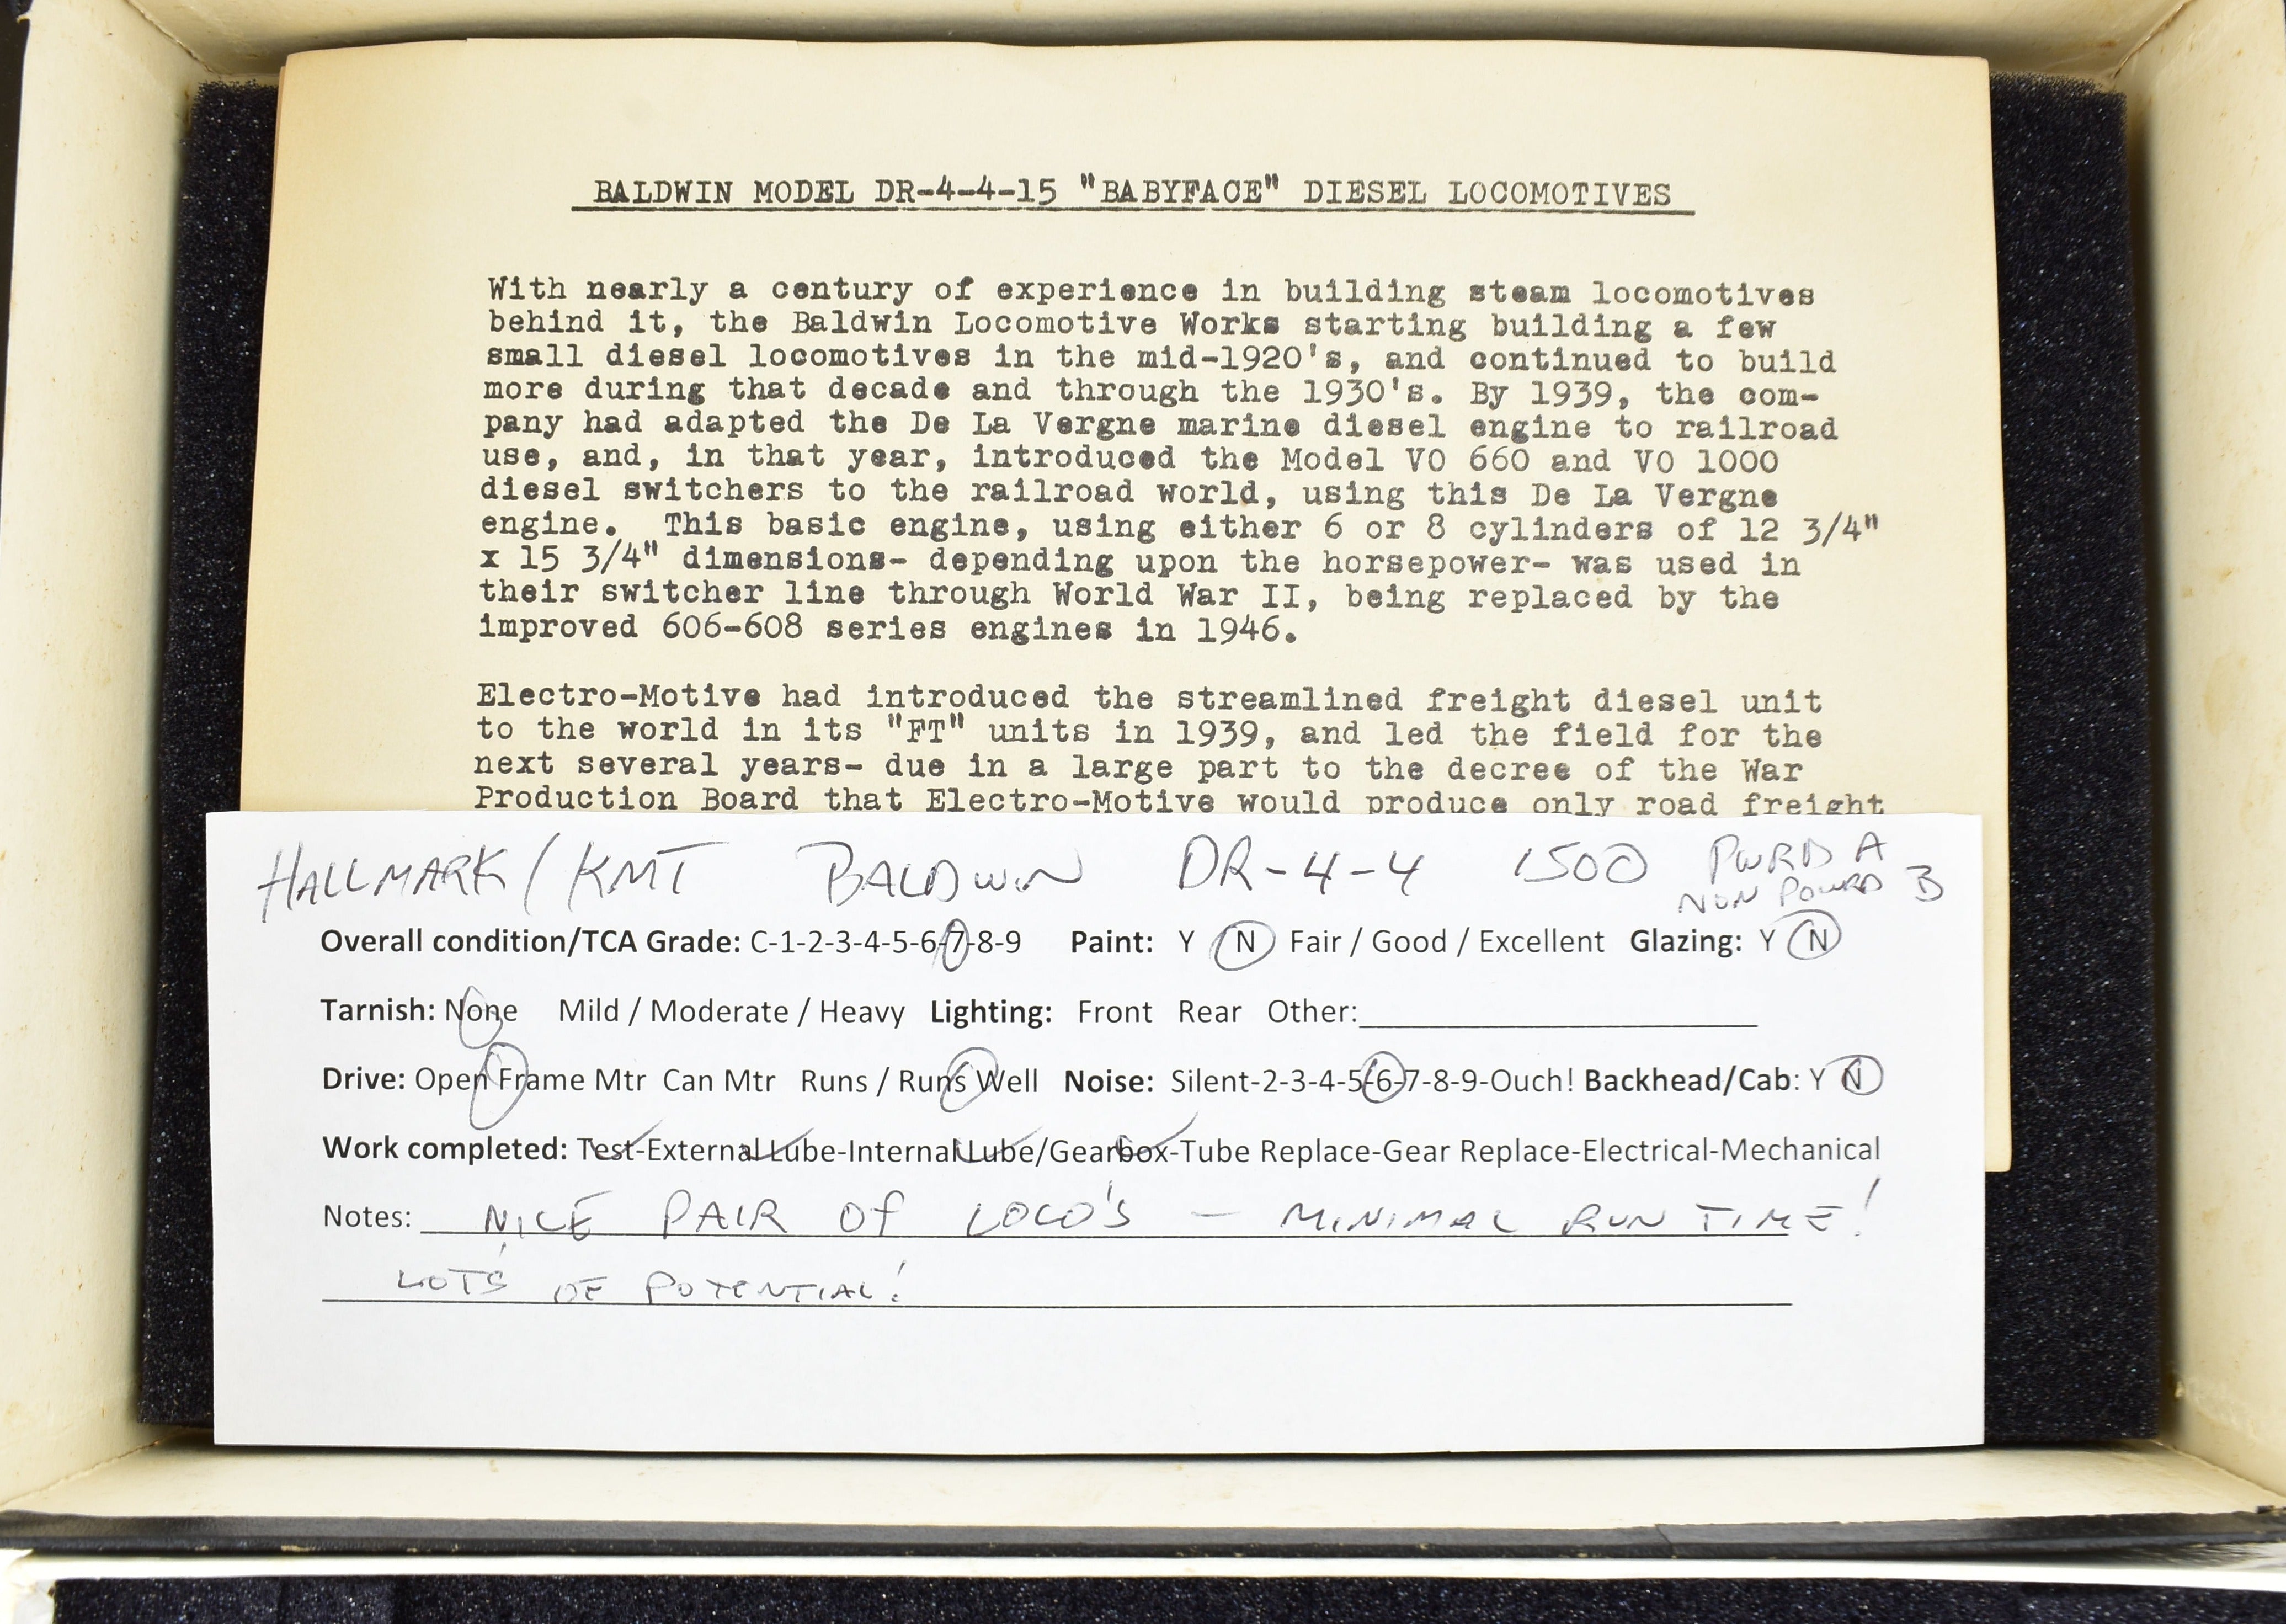 BALDWIN MODEL DR-4-4-15 "BABYFACE" DIESEL LOCOMOTIVES
With nearly a century of experience in building steam locomotives
behind it, the Baldwin Locomotive Works starting building a few
small diesel locomotives in the mid-1920's, and continued to build
more during that decade and through the 1930's. By 1939, the com-
pany had adapted the De La Vergne marine diesel engine to railroad
use, and, in that year, introduced the Model VO 660 and VO 1000
diesel switchers to the railroad world, using this De La Vergne
engine. This basic engine, using either 6 or 8 cylinders of 12 3/4"
x 15 3/4" dimensions- depending upon the horsepower- was used in
their switcher line through World War II, being replaced by the
improved 606-608 series engines in 1946.
Electro-Motive had introduced the streamlined freight diesel unit
to the world in its "FT" units in 1939, and led the field for the
next several years- due in a large part to the decree of the War
Production Board that Electro-Motive would produce only road freight
HALLMARK/KMT BALDWIN DR-4-4 1500 PWRD A
NON POWRD B
Overall condition/TCA Grade: C-1-2-3-4-5-6-7-8-9 Paint: Y N Fair / Good / Excellent Glazing: Y N
Tarnish: None Mild / Moderate / Heavy Lighting: Front Rear Other:
Drive: Open Frame Mtr Can Mtr Runs / Runs Well Noise: Silent-2-3-4-5-6-7-8-9-Ouch! Backhead/Cab: Y N
Work completed: Test-External Lube-Internal Lube/Gearbox-Tube Replace-Gear Replace-Electrical-Mechanical
Notes: NICE PAIR OF LOCO'S - MINIMAL RUN TIME!
LOT'S OF POTENTIAL!